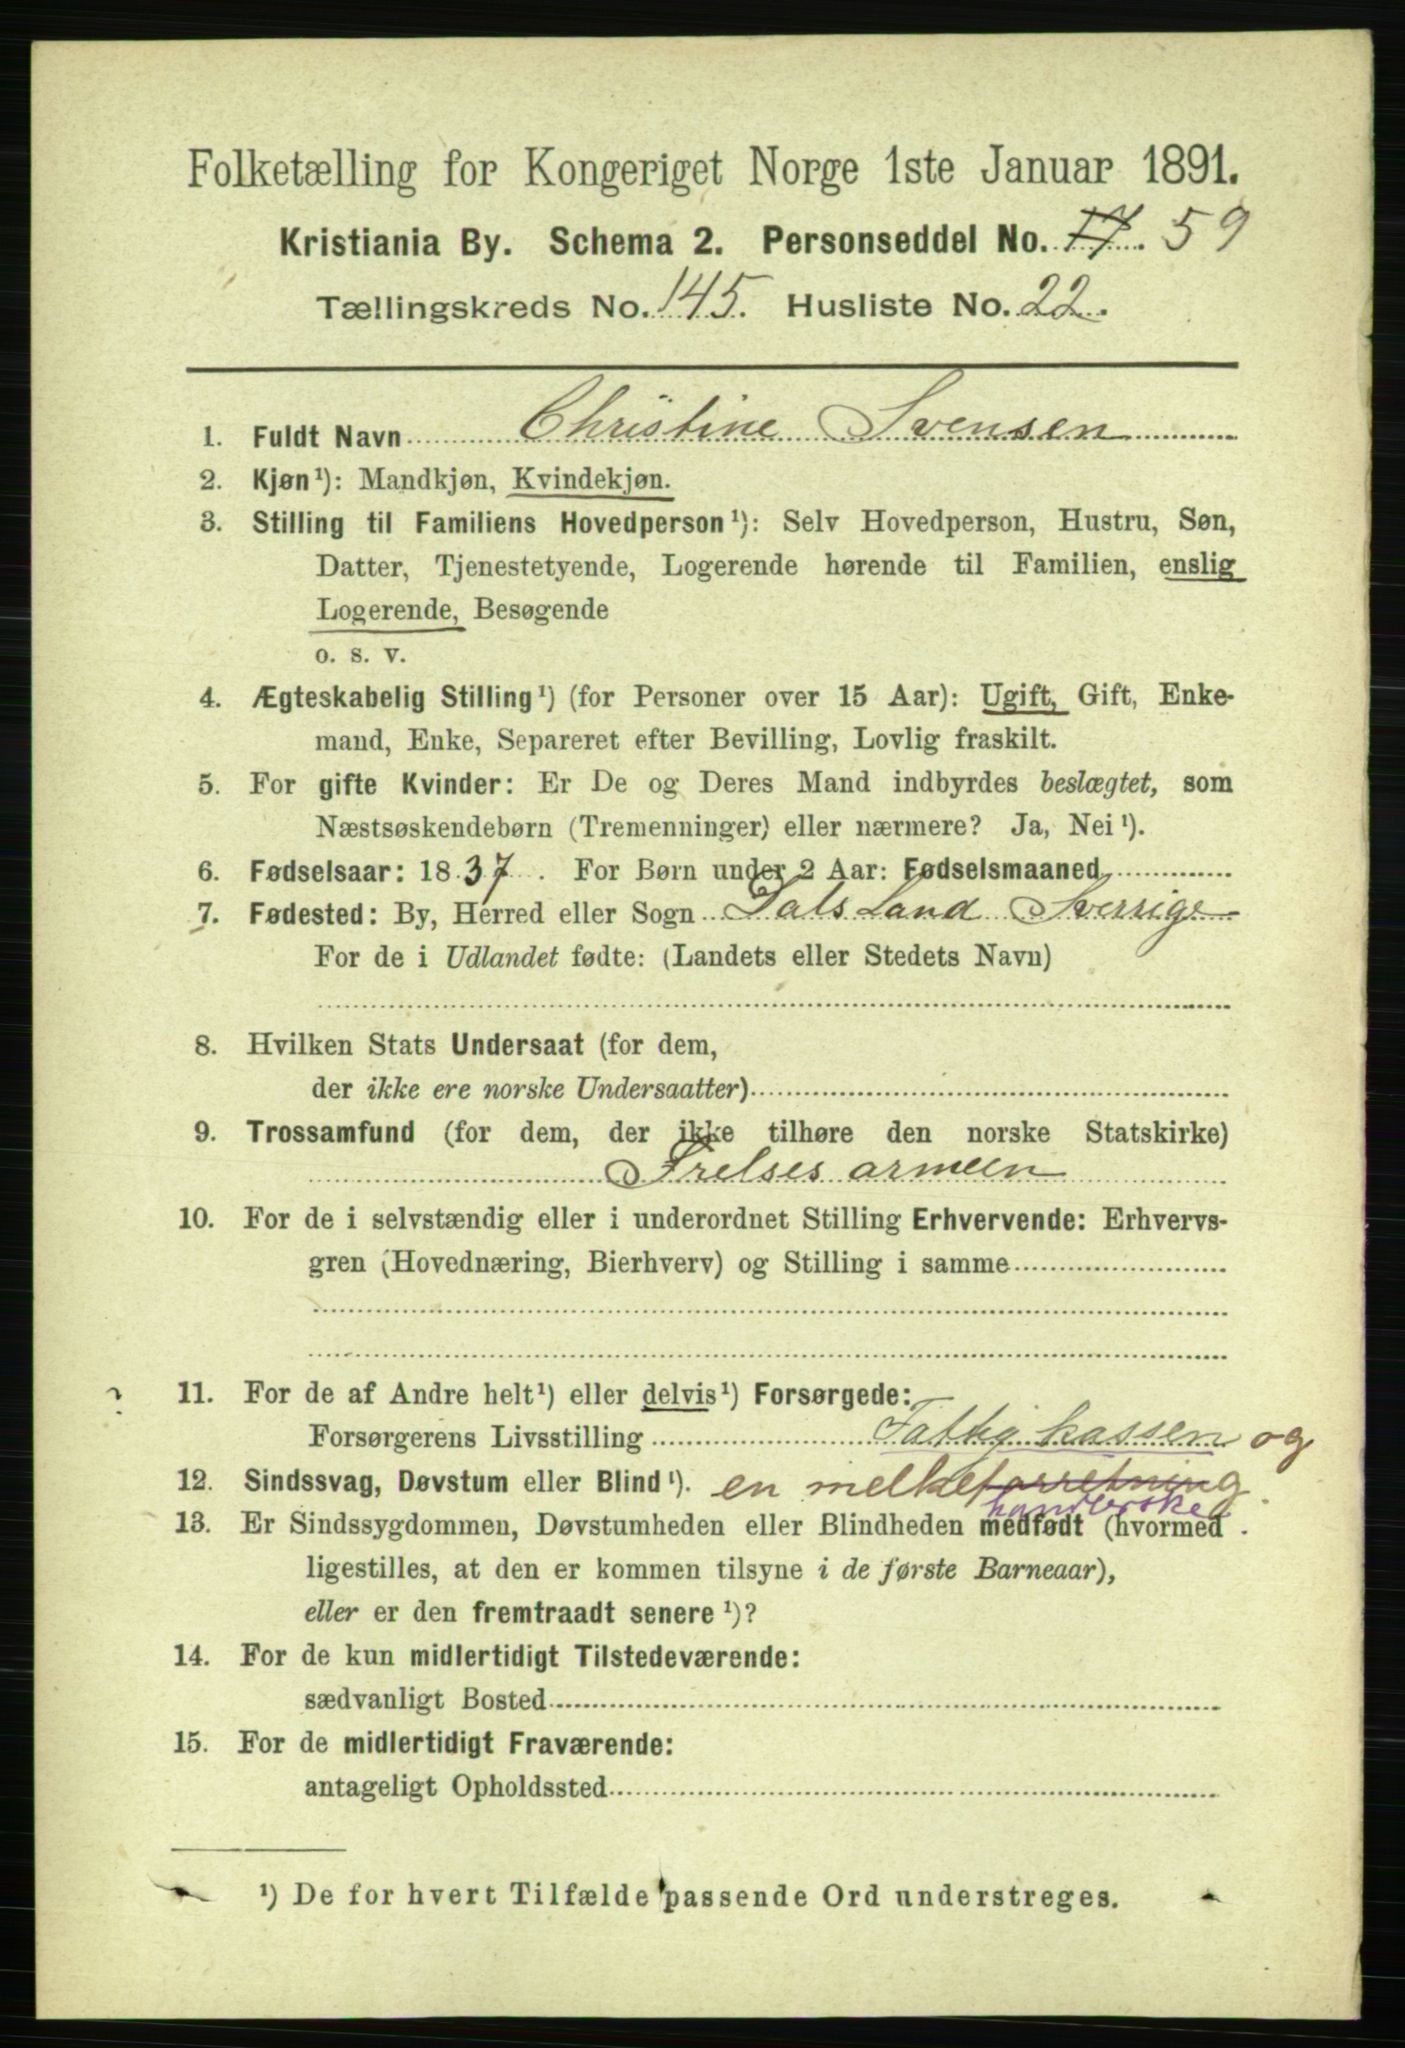 Folketælling for Kongeriget Norge 1ste Januar 1891.
Kristiania By. Schema 2. Personseddel No. 17. 59
Tællingskreds No. 145. Husliste No. 22.
1. Fuldt Navn Christine Svensen
2. Kjøn¹): Mandkjøn, Kvindekjøn.
3. Stilling til Familiens Hovedperson¹): Selv Hovedperson, Hustru, Søn,
Datter, Tjenestetyende, Logerende hørende til Familien, enslig
Logerende, Besøgende
o. s. v.
4. Ægteskabelig Stilling¹) (for Personer over 15 Aar): Ugift, Gift, Enke-
mand, Enke, Separeret efter Bevilling, Lovlig fraskilt.
5. For gifte Kvinder: Er De og Deres Mand indbyrdes beslægtet, som
Næstsøskendebørn (Tremenninger) eller nærmere? Ja, Nei¹).
6. Fødselsaar: 1837. For Børn under 2 Aar: Fødselsmaaned
7. Fødested: By, Herred eller Sogn Dals Land Sverrige
For de i Udlandet fødte: (Landets eller Stedets Navn)
8. Hvilken Stats Undersaat (for dem,
der ikke ere norske Undersaatter)
9. Trossamfund (for dem, der ikke tilhøre den norske Statskirke)
Frelses armeen
10. For de i selvstændig eller i underordnet Stilling Erhvervende: Erhvervs-
gren (Hovednæring, Bierhverv) og Stilling i samme
11. For de af Andre helt¹) eller delvis¹) Forsørgede:
Forsørgerens Livsstilling Fattigkassen og
12. Sindssvag, Døvstum eller Blind¹). en melkeforretning
handlerske
13. Er Sindssygdommen, Døvstumheden eller Blindheden medfødt (hvormed
ligestilles, at den er kommen tilsyne i de første Barneaar),
eller er den fremtraadt senere¹)?
14. For de kun midlertidigt Tilstedeværende:
sædvanligt Bosted
15. For de midlertidigt Fraværende:
antageligt Opholdssted
¹) De for hvert Tilfælde passende Ord understreges.